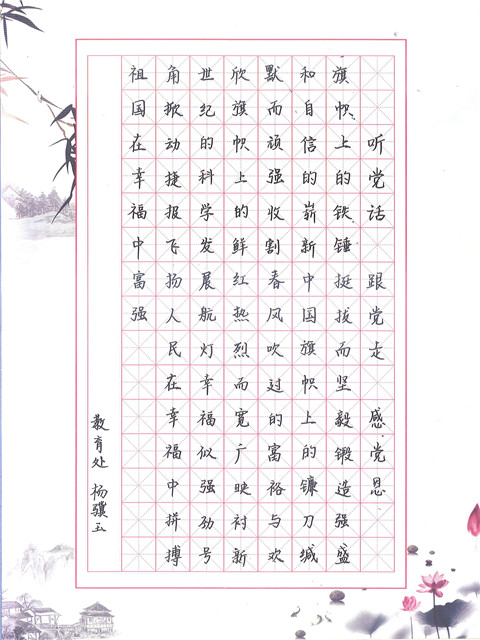 听党话 跟党走 感党恩
旗帜上的铁锤挺拔而坚毅锻造强盛
和自信的崭新中国旗帜上的镰刀缄
默而顽强收割春风吹过的富裕与欢
欣旗帜上的鲜红热烈而宽广映衬新
世纪的科学发展航灯幸福似强劲号
角掀动捷报飞扬人民在幸福中拼搏
祖国在幸福中富强
教育处 杨骥玉